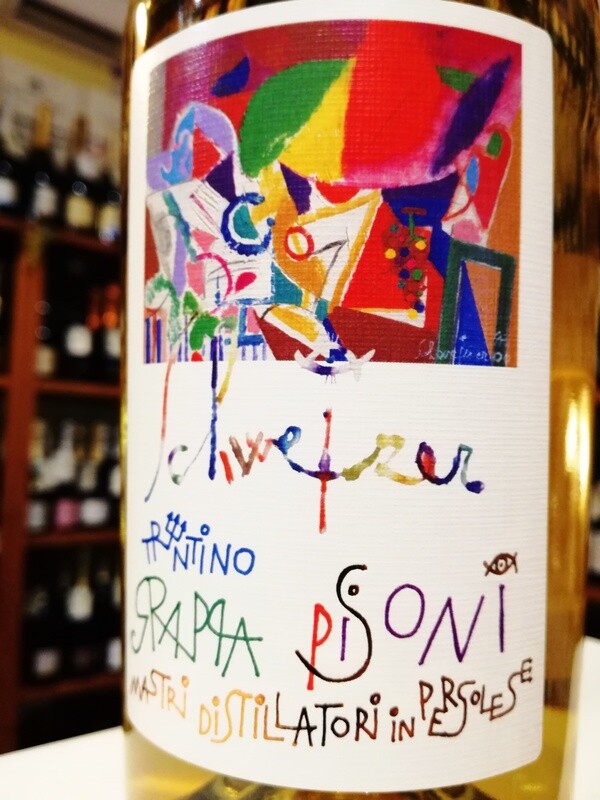 Schweizer
TRENTINO
GRAPPA PISONI
MASTRI DISTILLATORI IN PERGOLESE